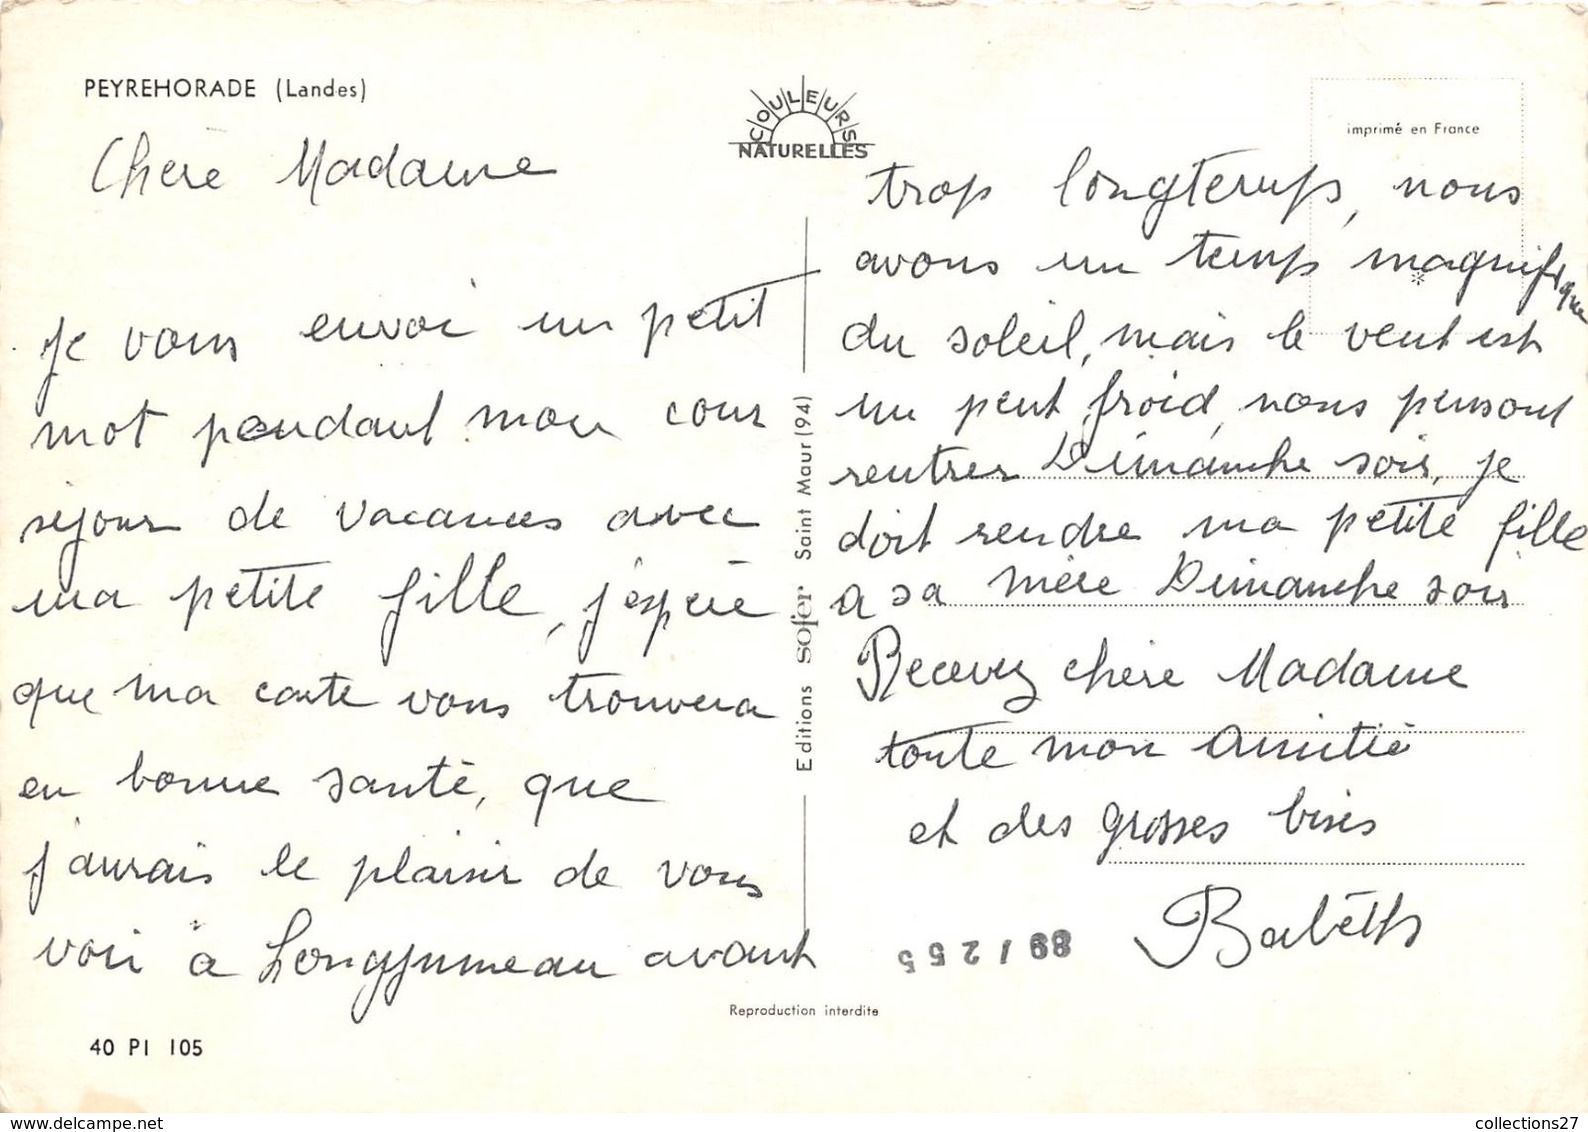 PEYREHORADE (Landes)
COULEURS
NATURELLES
imprimé en France
Chère Madame
je vous envoi un petit
mot pendant mon cour
séjour de vacances avec
ma petite fille, j'éspère
que ma carte vous trouvera
en bonne santé, que
j'aurais le plaisir de vous
voir à Longjumeau avant
40 PI 105
Editions sofer Saint Maur (94)
Reproduction interdite
trop longtemps, nous
avons un temps magnifique
du soleil, mais le vent est
un peut froid, nous pensont
rentrer Dimanche soir, je
doit rendre ma petite fille
a sa mère Dimanche soir
Recevez chère Madame
toute mon Amitié
et des grosses bises
Babeth
89/255
www.delcampe.net
collections27